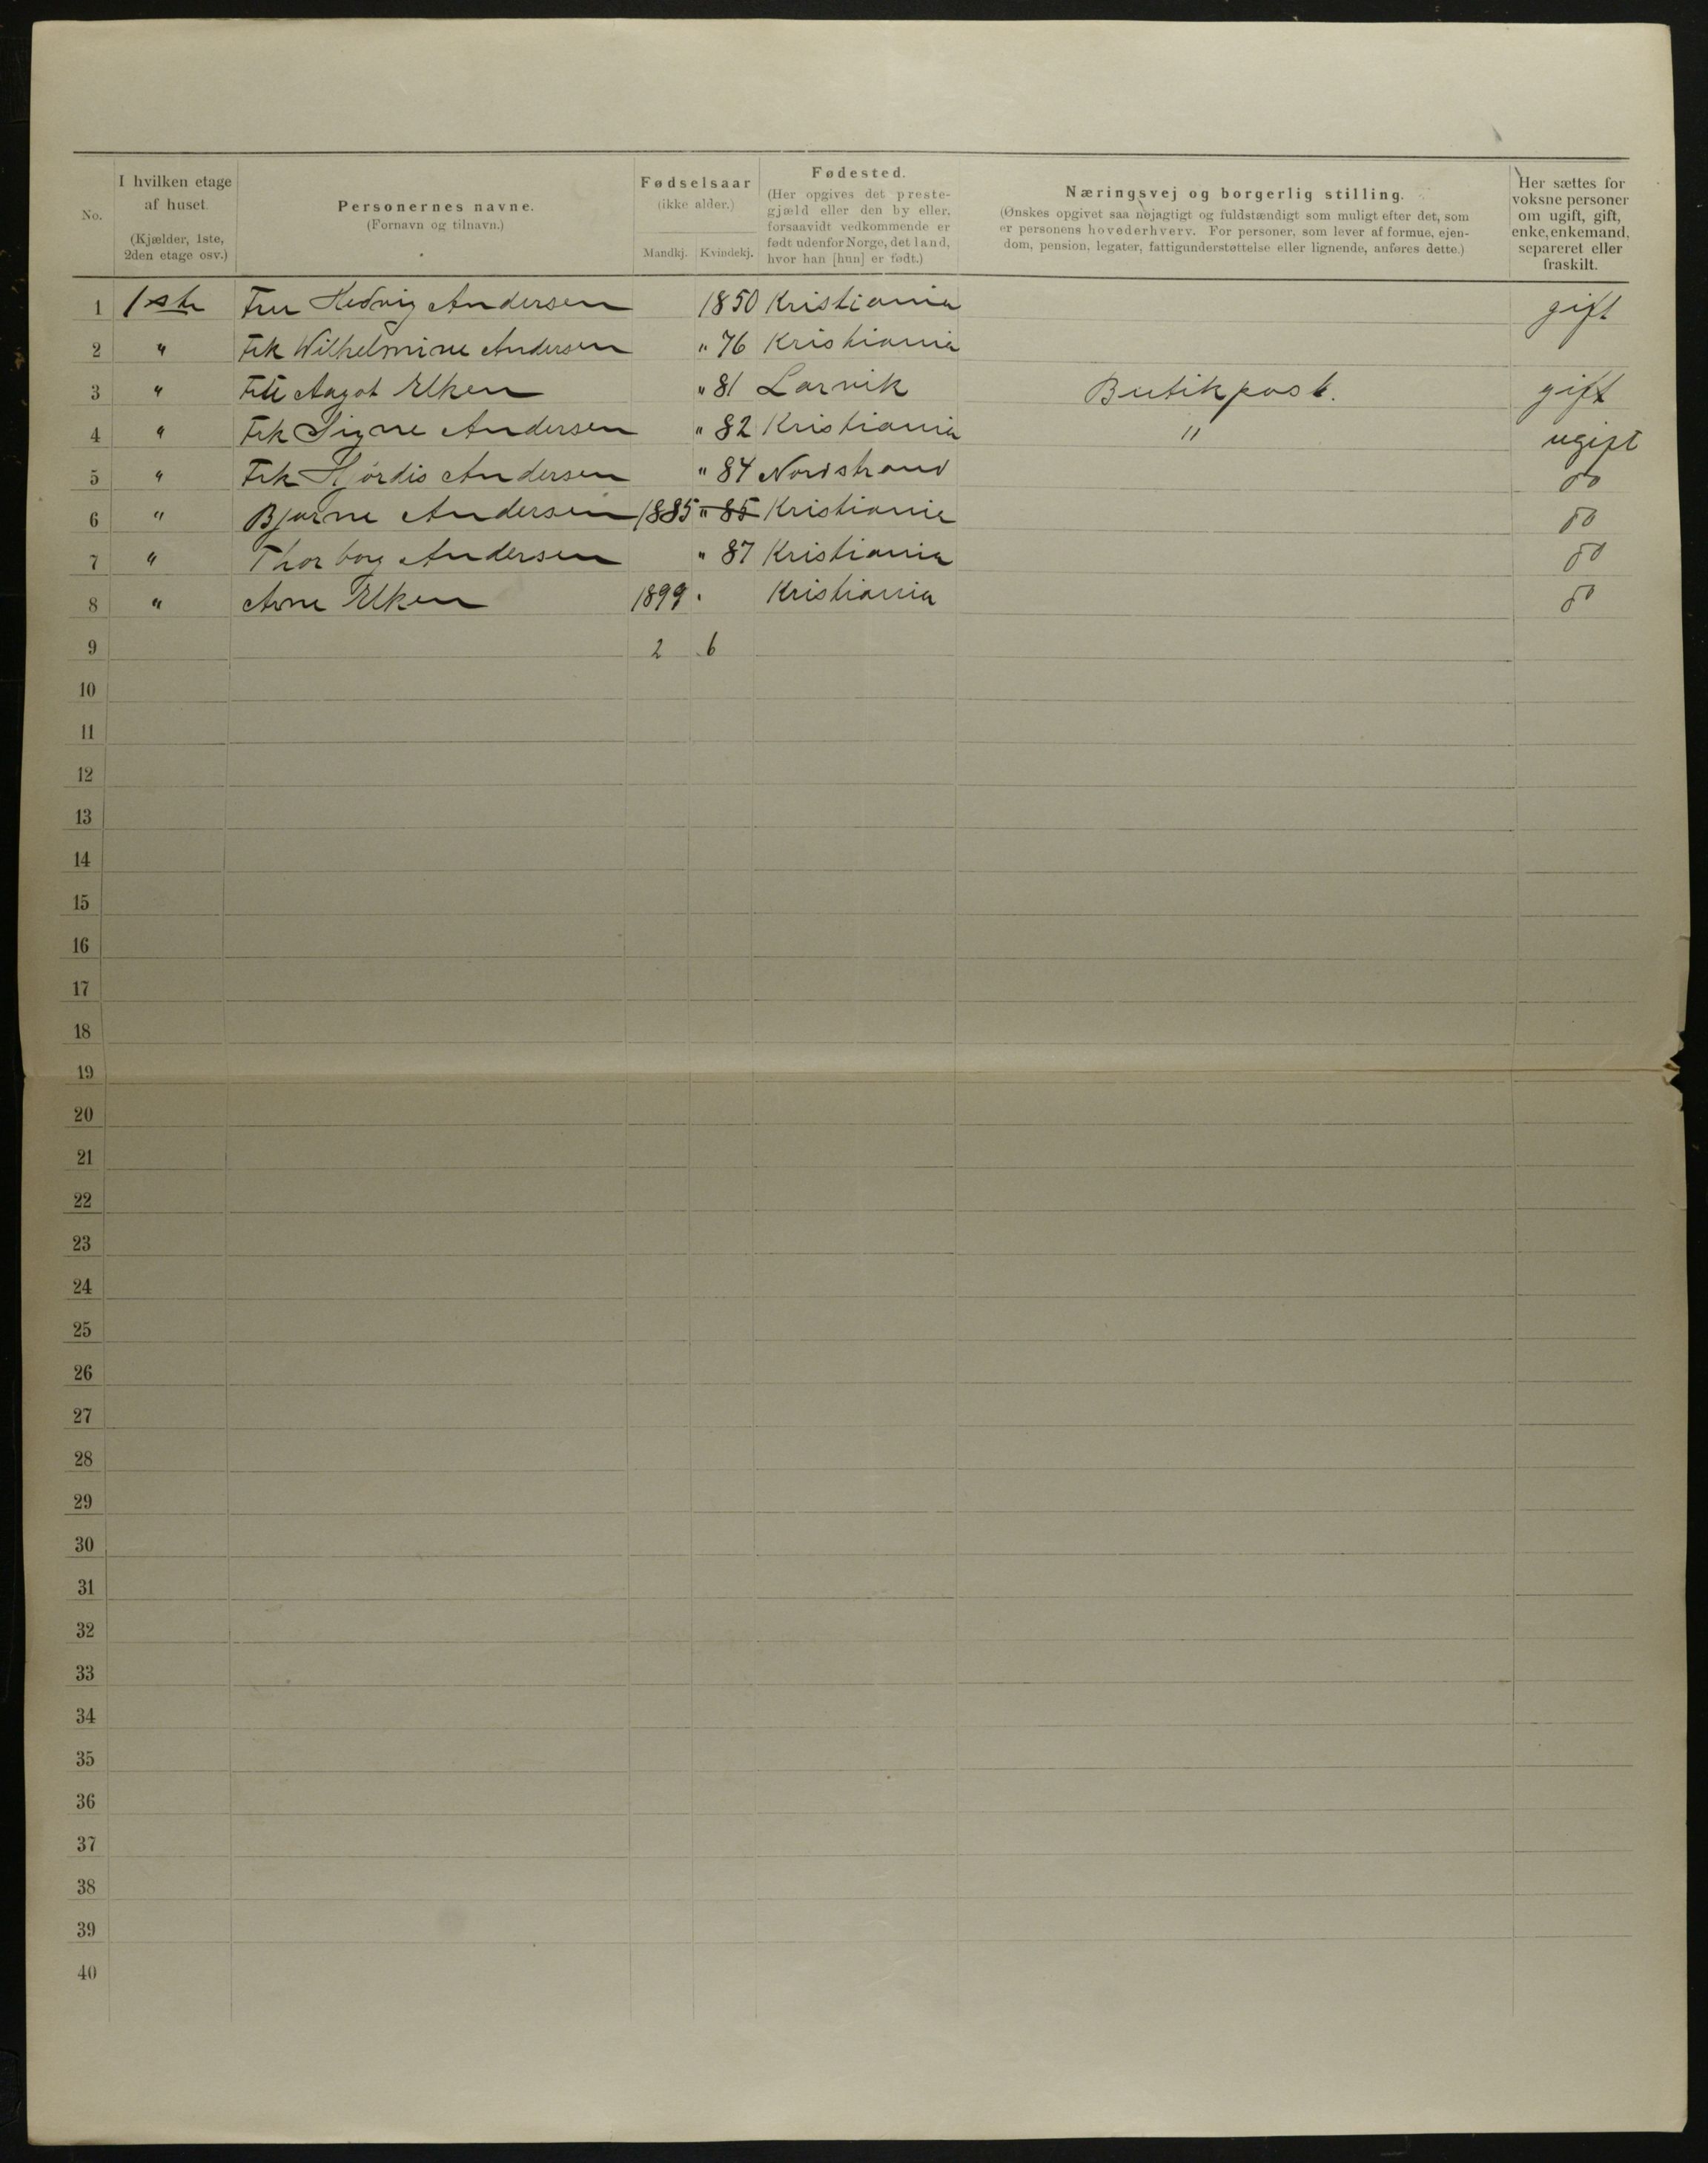 No.
I hvilken etage
af huset.
(Kjælder, 1ste,
2den etage osv.)
Personernes navne.
(Fornavn og tilnavn.)
Fødselsaar
(ikke alder.)
Mandkj. Kvindekj.
Fødested.
(Her opgives det preste-
gjæld eller den by eller,
forsaavidt vedkommende er
født udenfor Norge, det land,
hvor han [hun] er født.)
Næringsvej og borgerlig stilling.
(Ønskes opgivet saa nøjagtigt og fuldstændigt som muligt efter det, som
er personens hovederhverv. For personer, som lever af formue, ejen-
dom, pension, legater, fattigunderstøttelse eller lignende, anføres dette.)
Her sættes for
voksne personer
om ugift, gift,
enke, enkemand,
separeret eller
fraskilt.
1 1ste Fru Hedvig Andersen 1850 Kristiania gift
2 " Frk Wilhelmine Andersen " 76 Kristiania
3 " Aagot Elken " 81 Larvik Butikpost. gift
4 " Frk Signe Andersen " 82 Kristiania " ugift
5 " Frk Hjørdis Andersen " 84 Nordstrand do
6 " Bjarne Andersen 1885 " 85 Kristiania do
7 " Thorborg Andersen " 87 Kristiania do
8 " Arne Elken 1899 Kristiania do
9 2 6
10
11
12
13
14
15
16
17
18
19
20
21
22
23
24
25
26
27
28
29
30
31
32
33
34
35
36
37
38
39
40